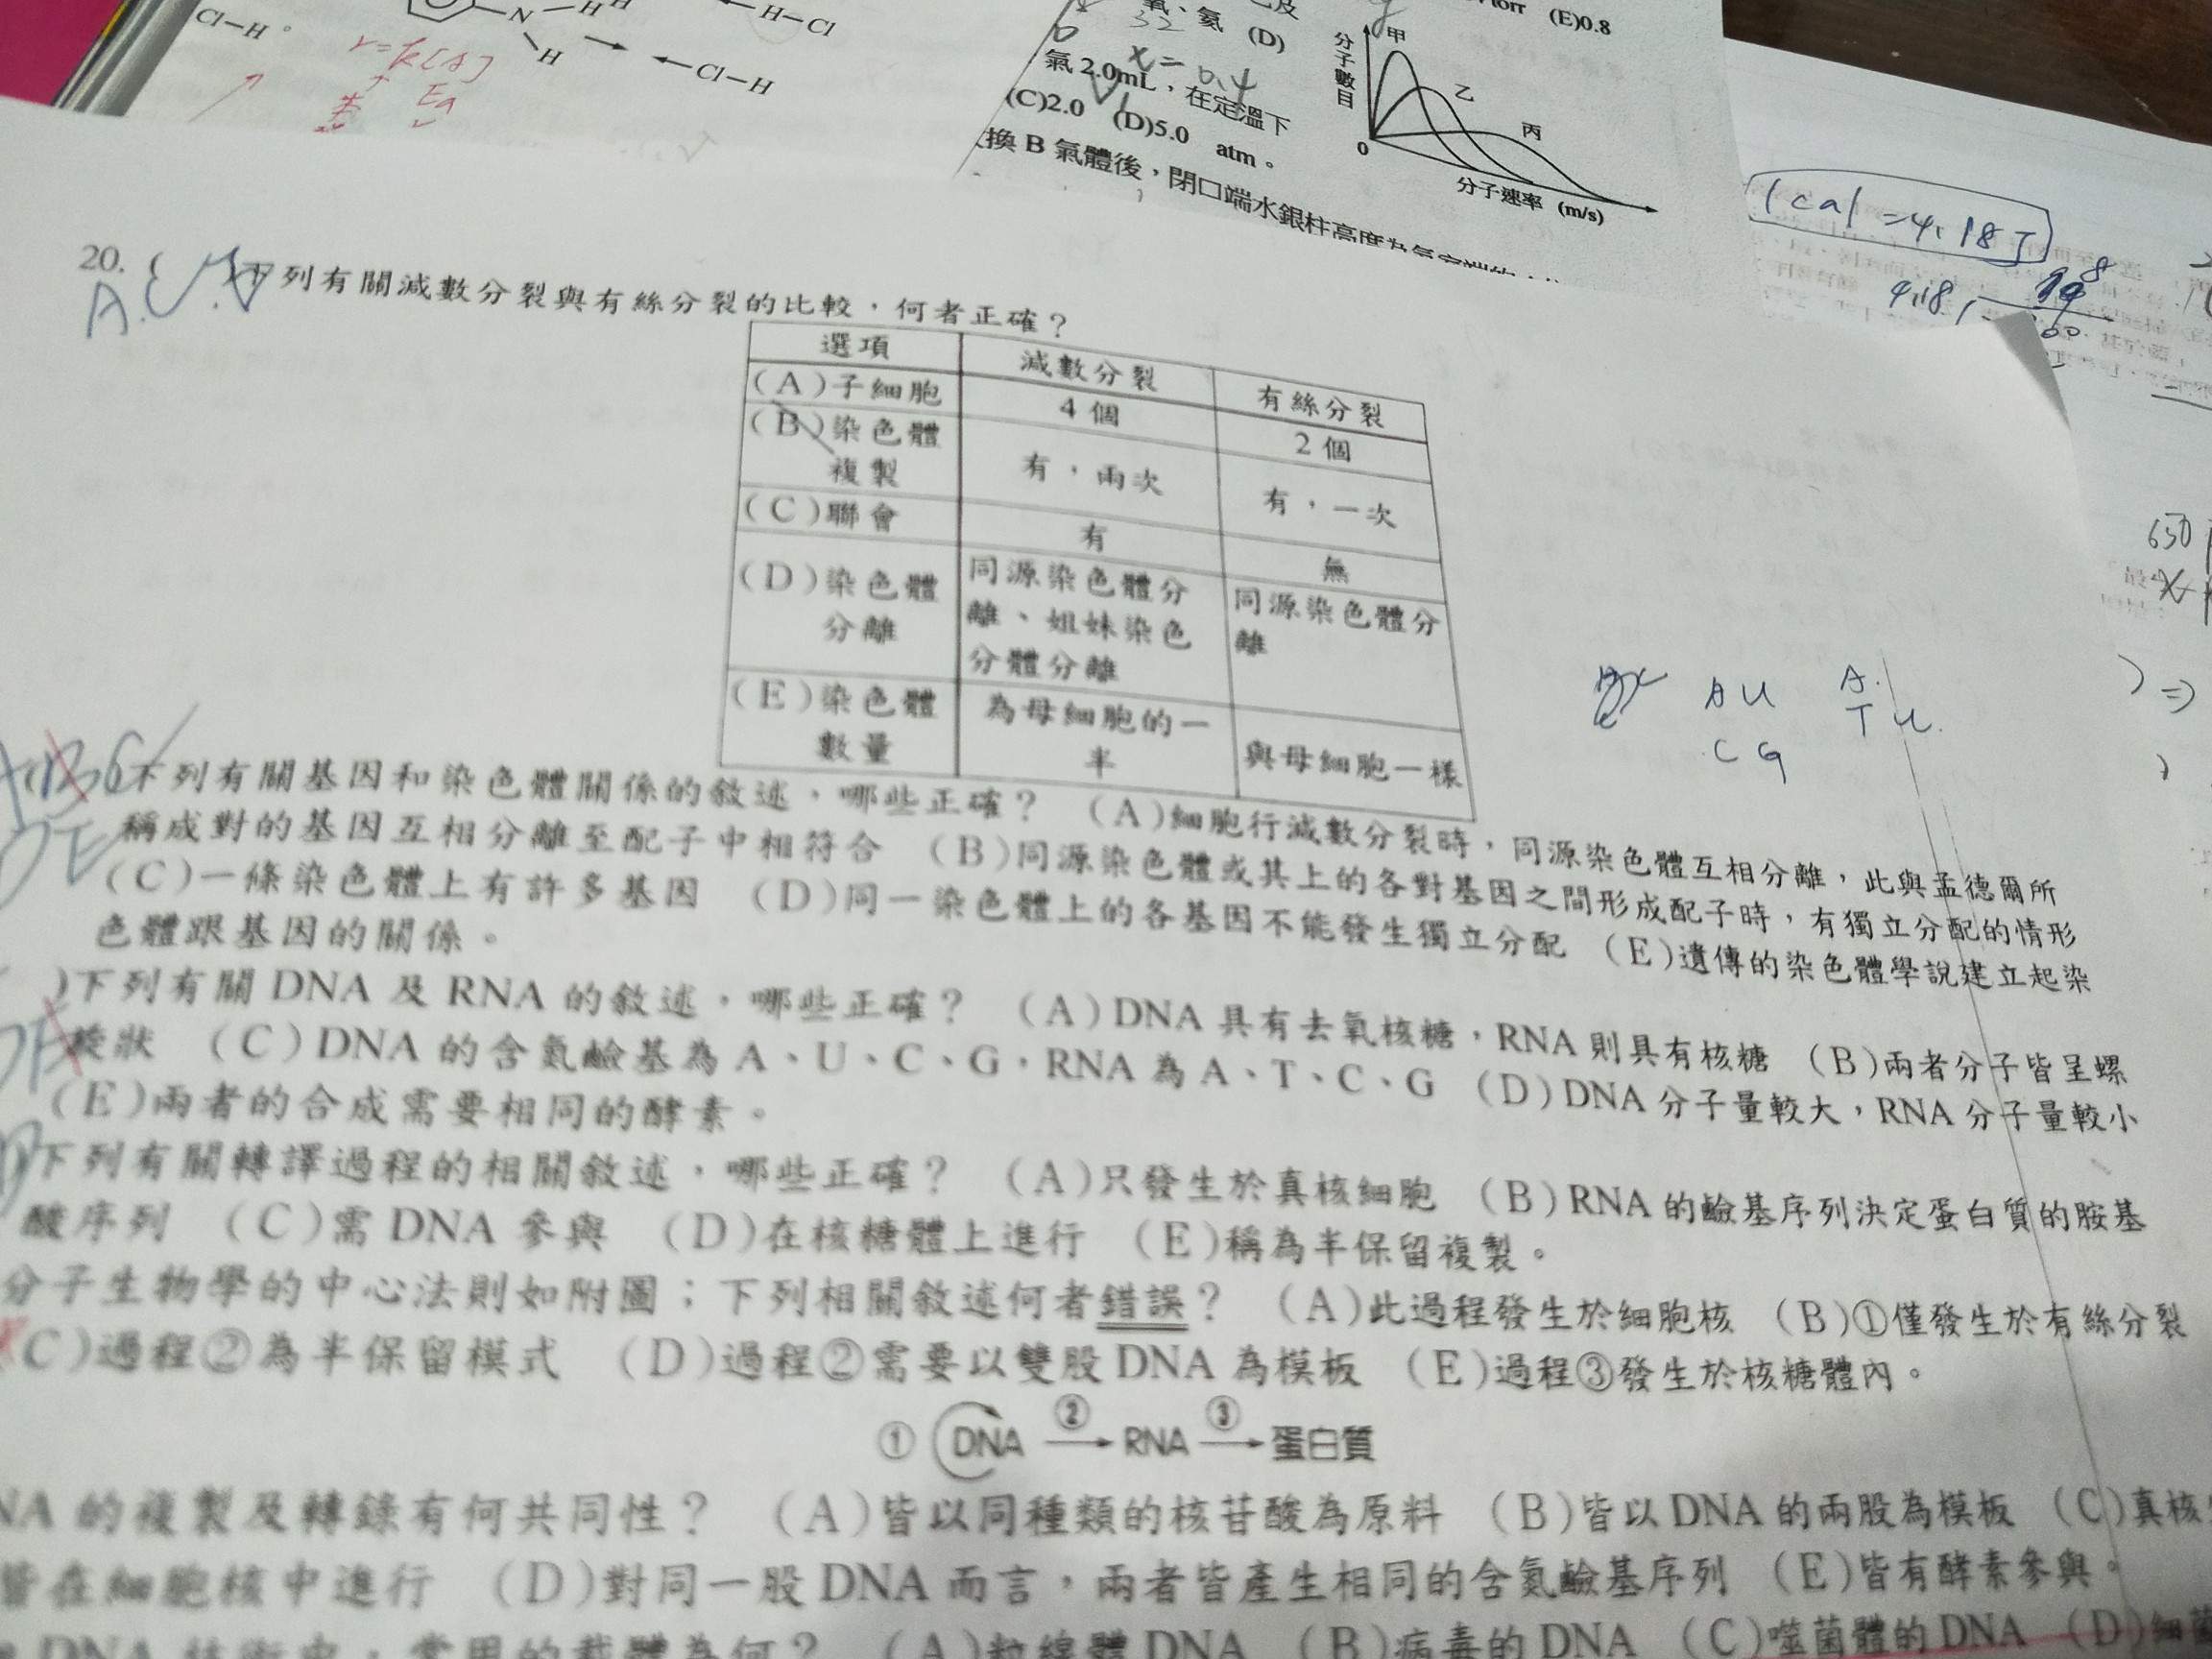 Cl–H。
N
H
H
H
H–Cl
Cl–H
r=k[A]
Ea
32
氧、氦 (D)
x = 0.4
氣 2.0mL，在定溫下
(C)2.0 (D)5.0 atm。
換 B 氣體後，閉口端水銀柱高度
torr (E)0.8
分子數目
甲
乙
丙
0
分子速率 (m/s)
1 cal = 4.18 J
4.18
650
20.
A.
下列有關減數分裂與有絲分裂的比較，何者正確？
選項 減數分裂 有絲分裂
(A)子細胞 4 個 2 個
(B)染色體複製 有，兩次 有，一次
(C)聯會 有 無
(D)染色體分離 同源染色體分離、姐妹染色分體分離 同源染色體分離
(E)染色體數量 為母細胞的一半 與母細胞一樣
A U
C G
A.
T U.
下列有關基因和染色體關係的敘述，哪些正確？ (A)細胞行減數分裂時，同源染色體互相分離，此與孟德爾所
稱成對的基因互相分離至配子中相符合 (B)同源染色體或其上的各對基因之間形成配子時，有獨立分配的情形
(C)一條染色體上有許多基因 (D)同一染色體上的各基因不能發生獨立分配 (E)遺傳的染色體學說建立起染
色體跟基因的關係。
)下列有關 DNA 及 RNA 的敘述，哪些正確？ (A)DNA 具有去氧核糖，RNA 則具有核糖 (B)兩者分子皆呈螺
旋狀 (C)DNA 的含氮鹼基為 A、U、C、G，RNA 為 A、T、C、G (D)DNA 分子量較大，RNA 分子量較小
(E)兩者的合成需要相同的酵素。
下列有關轉譯過程的相關敘述，哪些正確？ (A)只發生於真核細胞 (B)RNA 的鹼基序列決定蛋白質的胺基
酸序列 (C)需 DNA 參與 (D)在核糖體上進行 (E)稱為半保留複製。
分子生物學的中心法則如附圖；下列相關敘述何者錯誤？ (A)此過程發生於細胞核 (B)①僅發生於有絲分裂
C)過程②為半保留模式 (D)過程②需要以雙股 DNA 為模板 (E)過程③發生於核糖體內。
① DNA ② RNA ③ 蛋白質
NA 的複製及轉錄有何共同性？ (A)皆以同種類的核苷酸為原料 (B)皆以 DNA 的兩股為模板 (C)真核
皆在細胞核中進行 (D)對同一股 DNA 而言，兩者皆產生相同的含氮鹼基序列 (E)皆有酵素參與。
DNA 技術中，常用的載體為何？ (A)粒線體 DNA (B)病毒的 DNA (C)噬菌體的 DNA (D)細菌